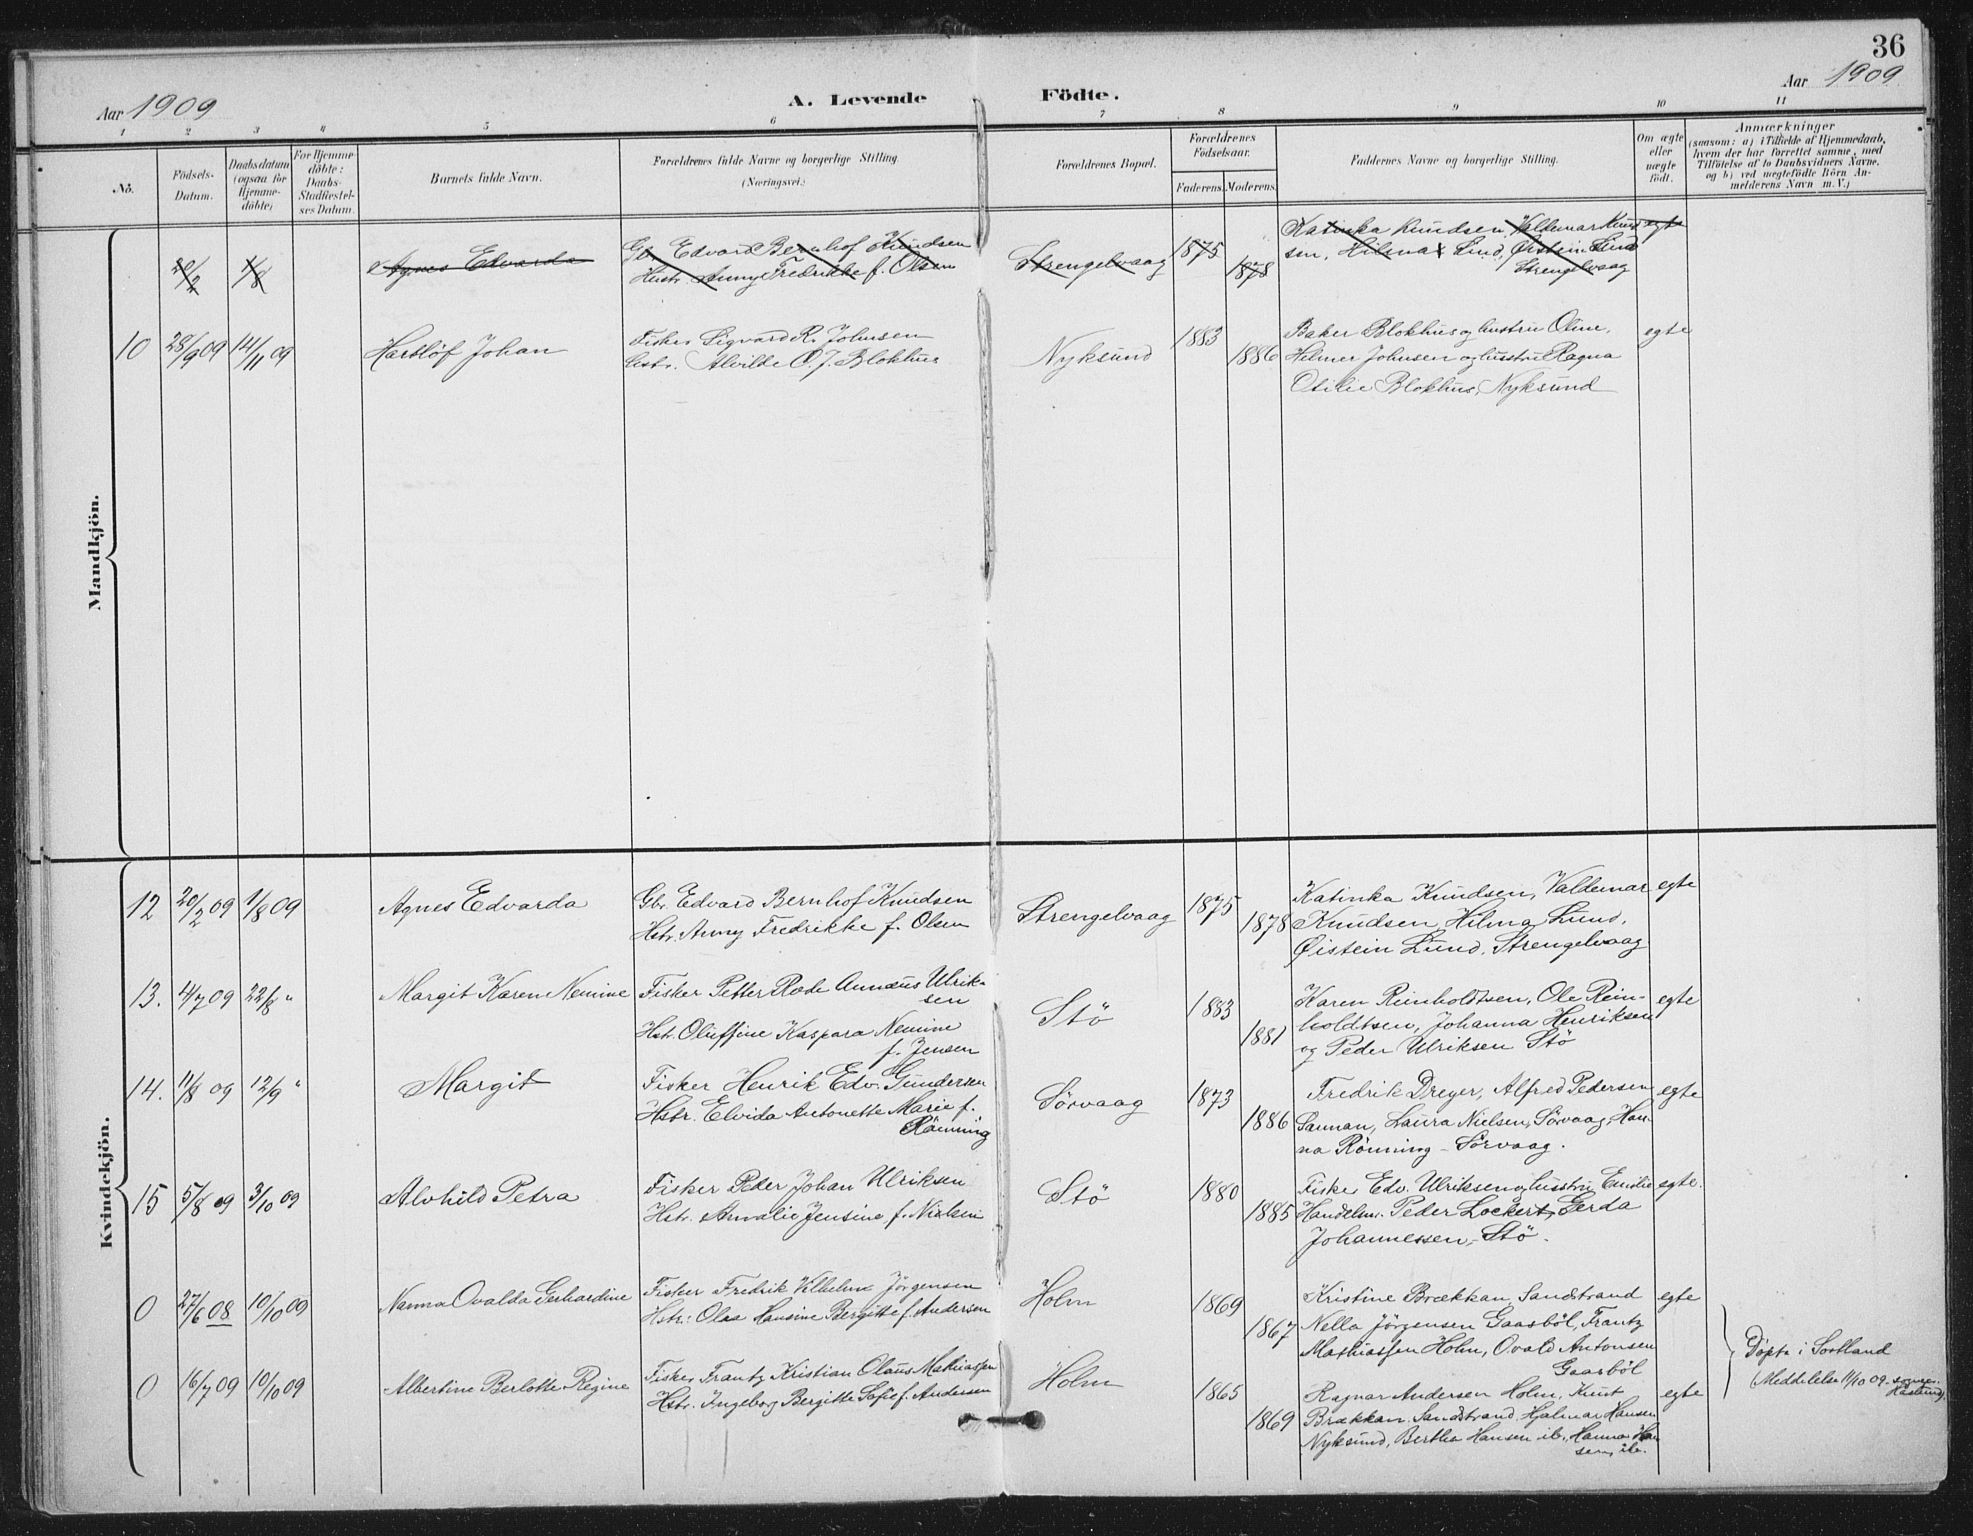 36
Aar 1909
A. Levende Födte.
Aar 1909
1 2 3 4 5 6 7 8 9 10 11
No.
Födsels-Datum.
Daabsdatum (ogsaa for Hjemme-döbte)
For Hjemme-döbte: Daabs-Stadfæstel-ses Datum.
Barnets fulde Navn.
Forældrenes fulde Navne og borgerlige Stilling. (Næringsvei.)
Forældrenes Bopæl.
Forældrenes Födselsaar.
Faderens. Moderens.
Faddernes Navne og borgerlige Stilling.
Om ægte eller uægte födt.
Anmærkninger
(saasom: a) i Tilfælde af Hjemmedaab,
hvem der har forrettet samme, med
Tilföielse af to Daabsvidners Navne,
og b) ved uægtefödte Börn An-
melderens Navn m. V.)
Mandkjön.
20/2 1/8 Agnes Edvarda
Gbr. Edvard Bernhof Knudsen
Hustr. Anny Fredrikke f. Olsen
Strengelvaag 1875 1878
Katinka Knudsen, Valdemar Knud- egte
sen, Hilma Lund, Øistein Lund
Strengelvaag
10 28/9 09 14/11 09 Hartlöf Johan
Fisker Sigvard R. Johnsen
Hstr. Alvilde O. J. Blokhus
Nyksund 1883 1886
Baker Blokhus og hustru Oline, egte
Helmer Johnsen og hustru Ragna
Otilie Blokhus, Nyksund
Kvindekjön.
12 20/2 09 1/8 09 Agnes Edvarda
Gbr. Edvard Bernhof Knudsen
Hstr. Anny Fredrikke f. Olsen
Strengelvaag 1875 1878
Katinka Knudsen, Valdemar egte
Knudsen, Hilma Lund,
Øistein Lund, Strengelvaag
13. 4/7 09 22/8 " Margit Karen Nemine
Fisker Petter Rode Annæus Ulrik-
sen
Hstr. Oluffine Kaspara Nemine
f. Jensen
Stö 1883 1881
Karen Reinholdtsen, Ole Rein- egte
holdtsen, Johanna Henriksen
og Peder Ulriksen Stö
14. 11/8 09 12/9 " Margit
Fisker Henrik Edv. Gundersen
Hstr. Elvida Antonette Marie f.
Rönning
Sörvaag 1873 1886
Fredrik Dreyer, Alfred Pedersen egte
Sannan, Laura Nielsen, Sörvaag, Han-
na Rönning - Sörvaag.
15 5/8 09 3/10 09 Alvhild Petra
Fisker Peder Johan Ulriksen
Hstr. Amalie Jensine f. Nielsen
Stö 1880 1885
Fisker Edv. Ulriksen og hustru Emilie egte.
Handelsm. Peder Lockert, Gerda
Johannessen, Stö.
0 27/6 08 10/10 09 Nanna Ovalda Gerhardine
Fisker Fredrik Vilhelm Jörgensen
Hstr: Olaa Hansine Bergitte f. Andersen
Holm 1869 1867
Kristine Brækkan, Sandstrand egte
Nella Jörgensen Gaasböl, Frantz
Mathiassen Holm, Ovald Antonsen
Gaasböl
0 16/7 09 10/10 09 Albertine Berlotte Regine
Fisker Frantz Kristian Olaus Mathiassen
Hstr. Ingeborg Bergitte Sofie f. Andersen
Holm 1865 1869
Ragnar Andersen Holm, Knut egte
Brækkan, Sandstrand, Hjalmar Hansen
Nyksund, Bertha Hansen ib., Hanna Han
sen, ib.
Döpte i Sortland
(Meddelelse 11/10 09